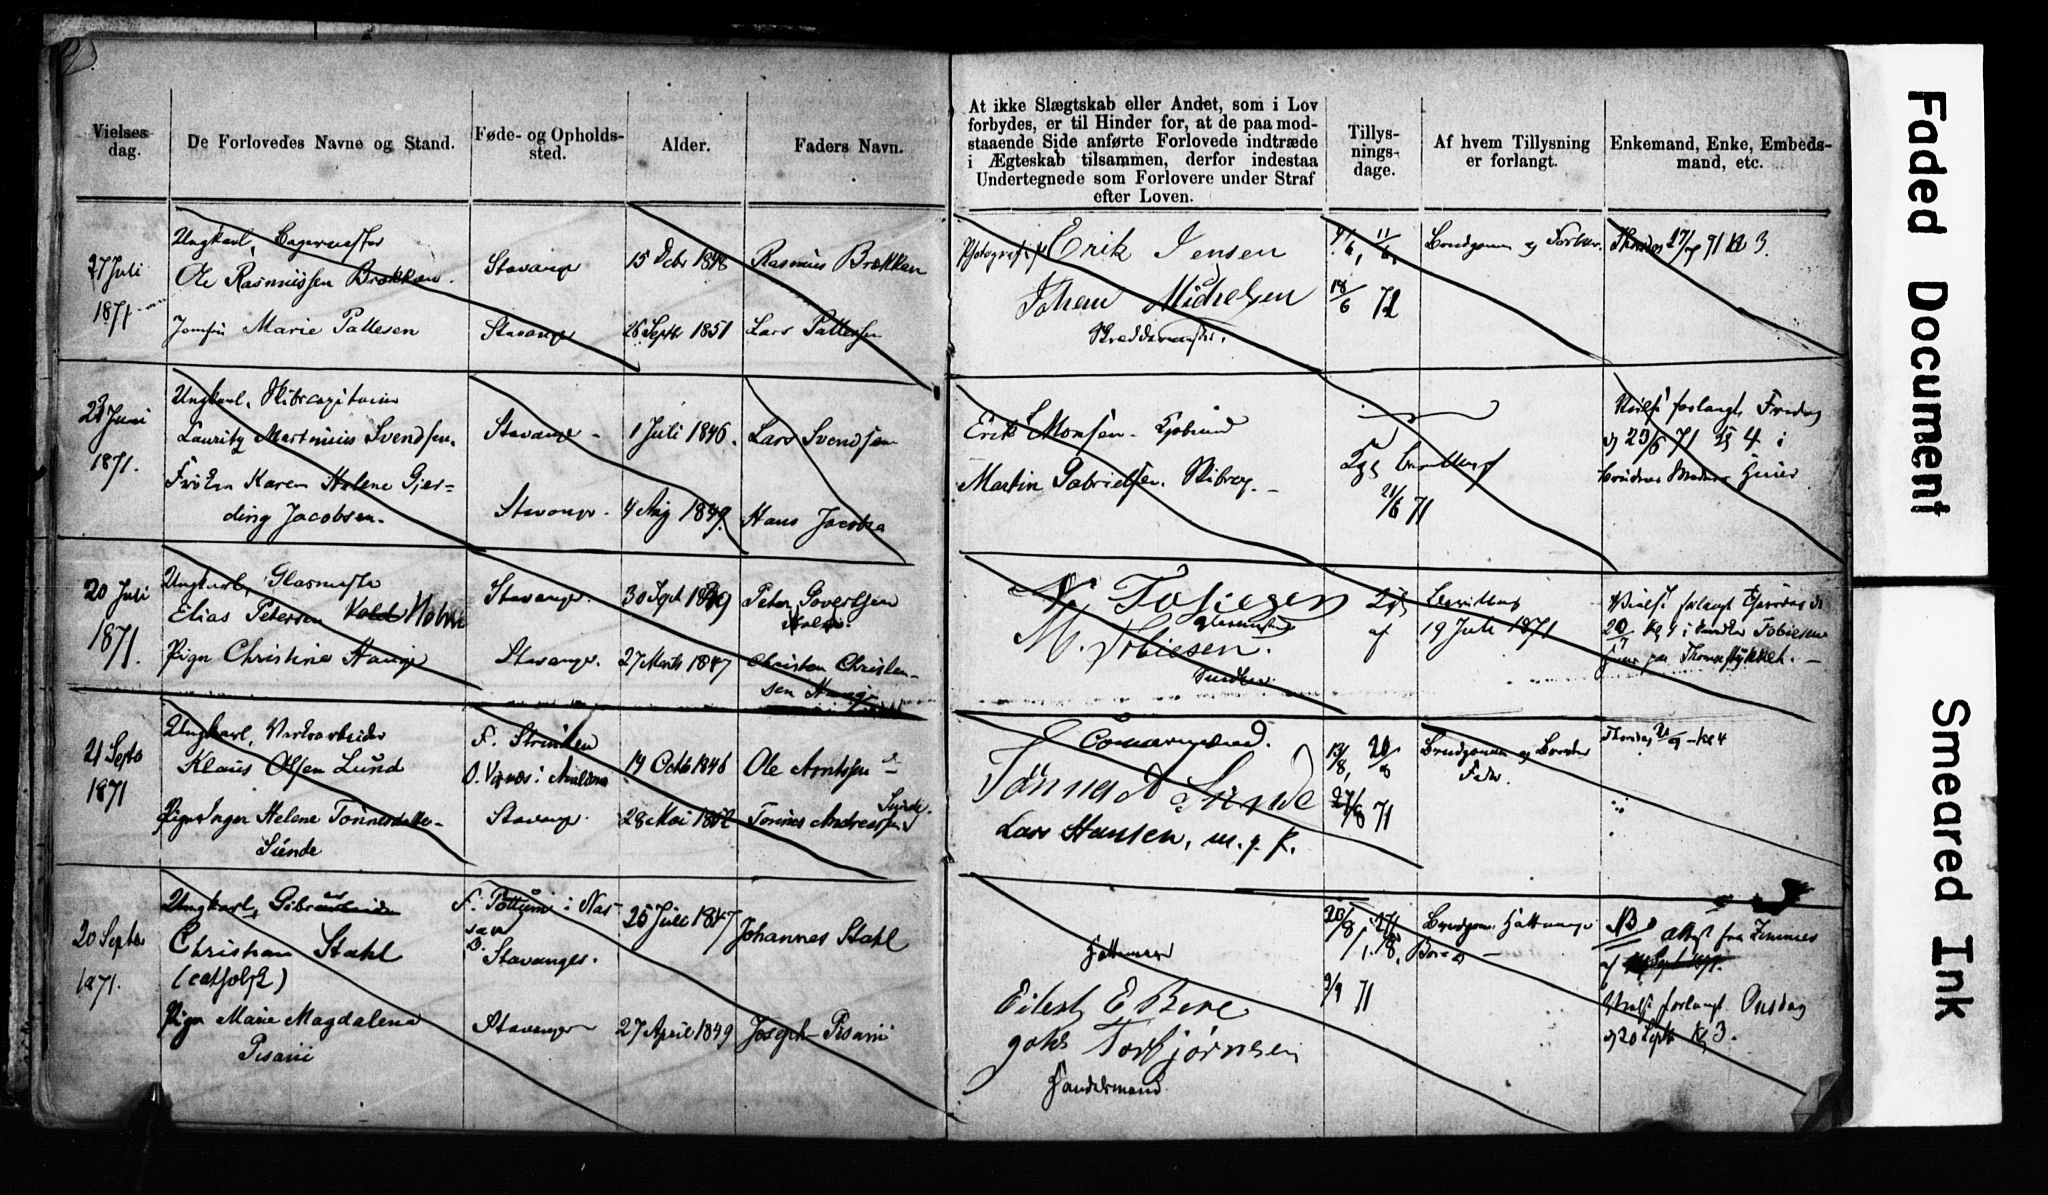 Vielses-
dag.
De Forlovedes Navne og Stand.
Føde- og Opholds-
sted.
Alder.
Faders Navn.
At ikke Slægtskab eller Andet, som i Lov
forbydes, er til Hinder for, at de paa mod-
staaende Side anførte Forlovede indtræde
i Ægteskab tilsammen, derfor indestaa
Undertegnede som Forlovere under Straf
efter Loven.
Tillys-
nings-
dage.
Af hvem Tillysning
er forlangt.
Enkemand, Enke, Embeds-
mand, etc.
27 Juli
1871.
Ungkarl, Bagermester
Ole Rasmussen Brekken.
Jomfru Marie Pallesen
Stavanger
Stavanger
15 Debr 1848
26 Septr 1851
Rasmus Brekken
Lars Pallesen
Photograf
Erik Jensen
Johan Michelsen
Skreddermester.
4/6, 11/6,
18/6 71
Brudgommen og Forlover.
Thorsdag 27/7 71 Kl 3.
23 Juni
1871.
Ungkarl, Skibscapitain
Lauritz Martinius Svendsen.
Frøken Karen Helene Gjer-
ding Jacobsen.
Stavanger
Stavanger
1 Juli 1846.
4 Aug 1849.
Lars Svendsen
Hans Jacobsen
Erik Monsen. Kjøbmand
Martin Gabrielsen. Skibsrg.
Kgl Bevilling
21/6 71
Vielse forlangt Fredag
d 23/6 71 Kl 4 i
Brudens Moders Huus
20 Juli
1871.
Ungkarl, Glasmester
Elias Petersen Holm
Pige Christine Hauge
Stavanger.
Stavanger.
30 Sept 1849
27 Marts 1847
Peter Govertsen
Holm.
Christen Christen-
sen Hauge
N. Tobiesen
Glasmester
M. Tobiesen.
Snedker
Kgl Bevilling
af 19 Juli 1871
Vielse forlangt Thorsdag d
20/7 Kl 4 i Snedker Tobiesens
Huus paa Thomsstykket.
21 Septbr
1871
Ungkarl, Værksarbeider
Klaus Olsen Lund
Pige Inger Helene Tønnesdatter
Sunde
F.
O.
Stavanger.
14 Octb 1846
28 Mai 1852
Ole Arntssen
Tønnes Andreassen
Sunde.
Tønnes A Sunde
Lars Hansen, m. p. P.
13/8, 20/8
27/8 71
Brudgommen og Brudens
Fader.
Thorsdag 21/9 - Kl 4
20 Septbr
1871.
Ungkarl, Gibsarbeider
Christian Stahl
(catholsk)
Pige Marie Magdalena
Pisani
F. Pottum i Nas-
sau
O. Stavanger.
Stavanger
25 Juli 1847
27 April 1849
Johannes Stahl
Joseph Pisani
Hattemager
Eilert E Bore
Johs Torbjørnsen
Handelsmand.
20/8, 27/8,
3/9 71
Brudgom. Hattemager
Bore
NB attest fra
af
Vielse forlangt Onsdag
d 20 Septbr Kl 3.
Faded Document
Smeared Ink